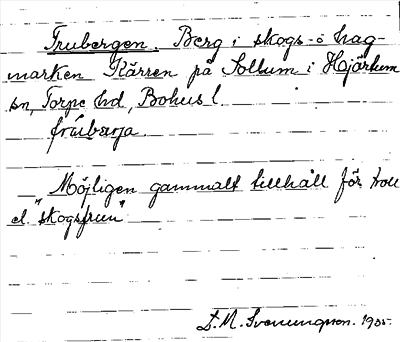 Frubergen. Berg i skogs- o hag-
marken Kärren på Sollum i Hjärtum
sn, Torpe hd, Bohusl.
frúbærja.
Möjligen gammalt tillhåll för troll
el. "skogsfrun"
S. M. Svenungsson. 1935.